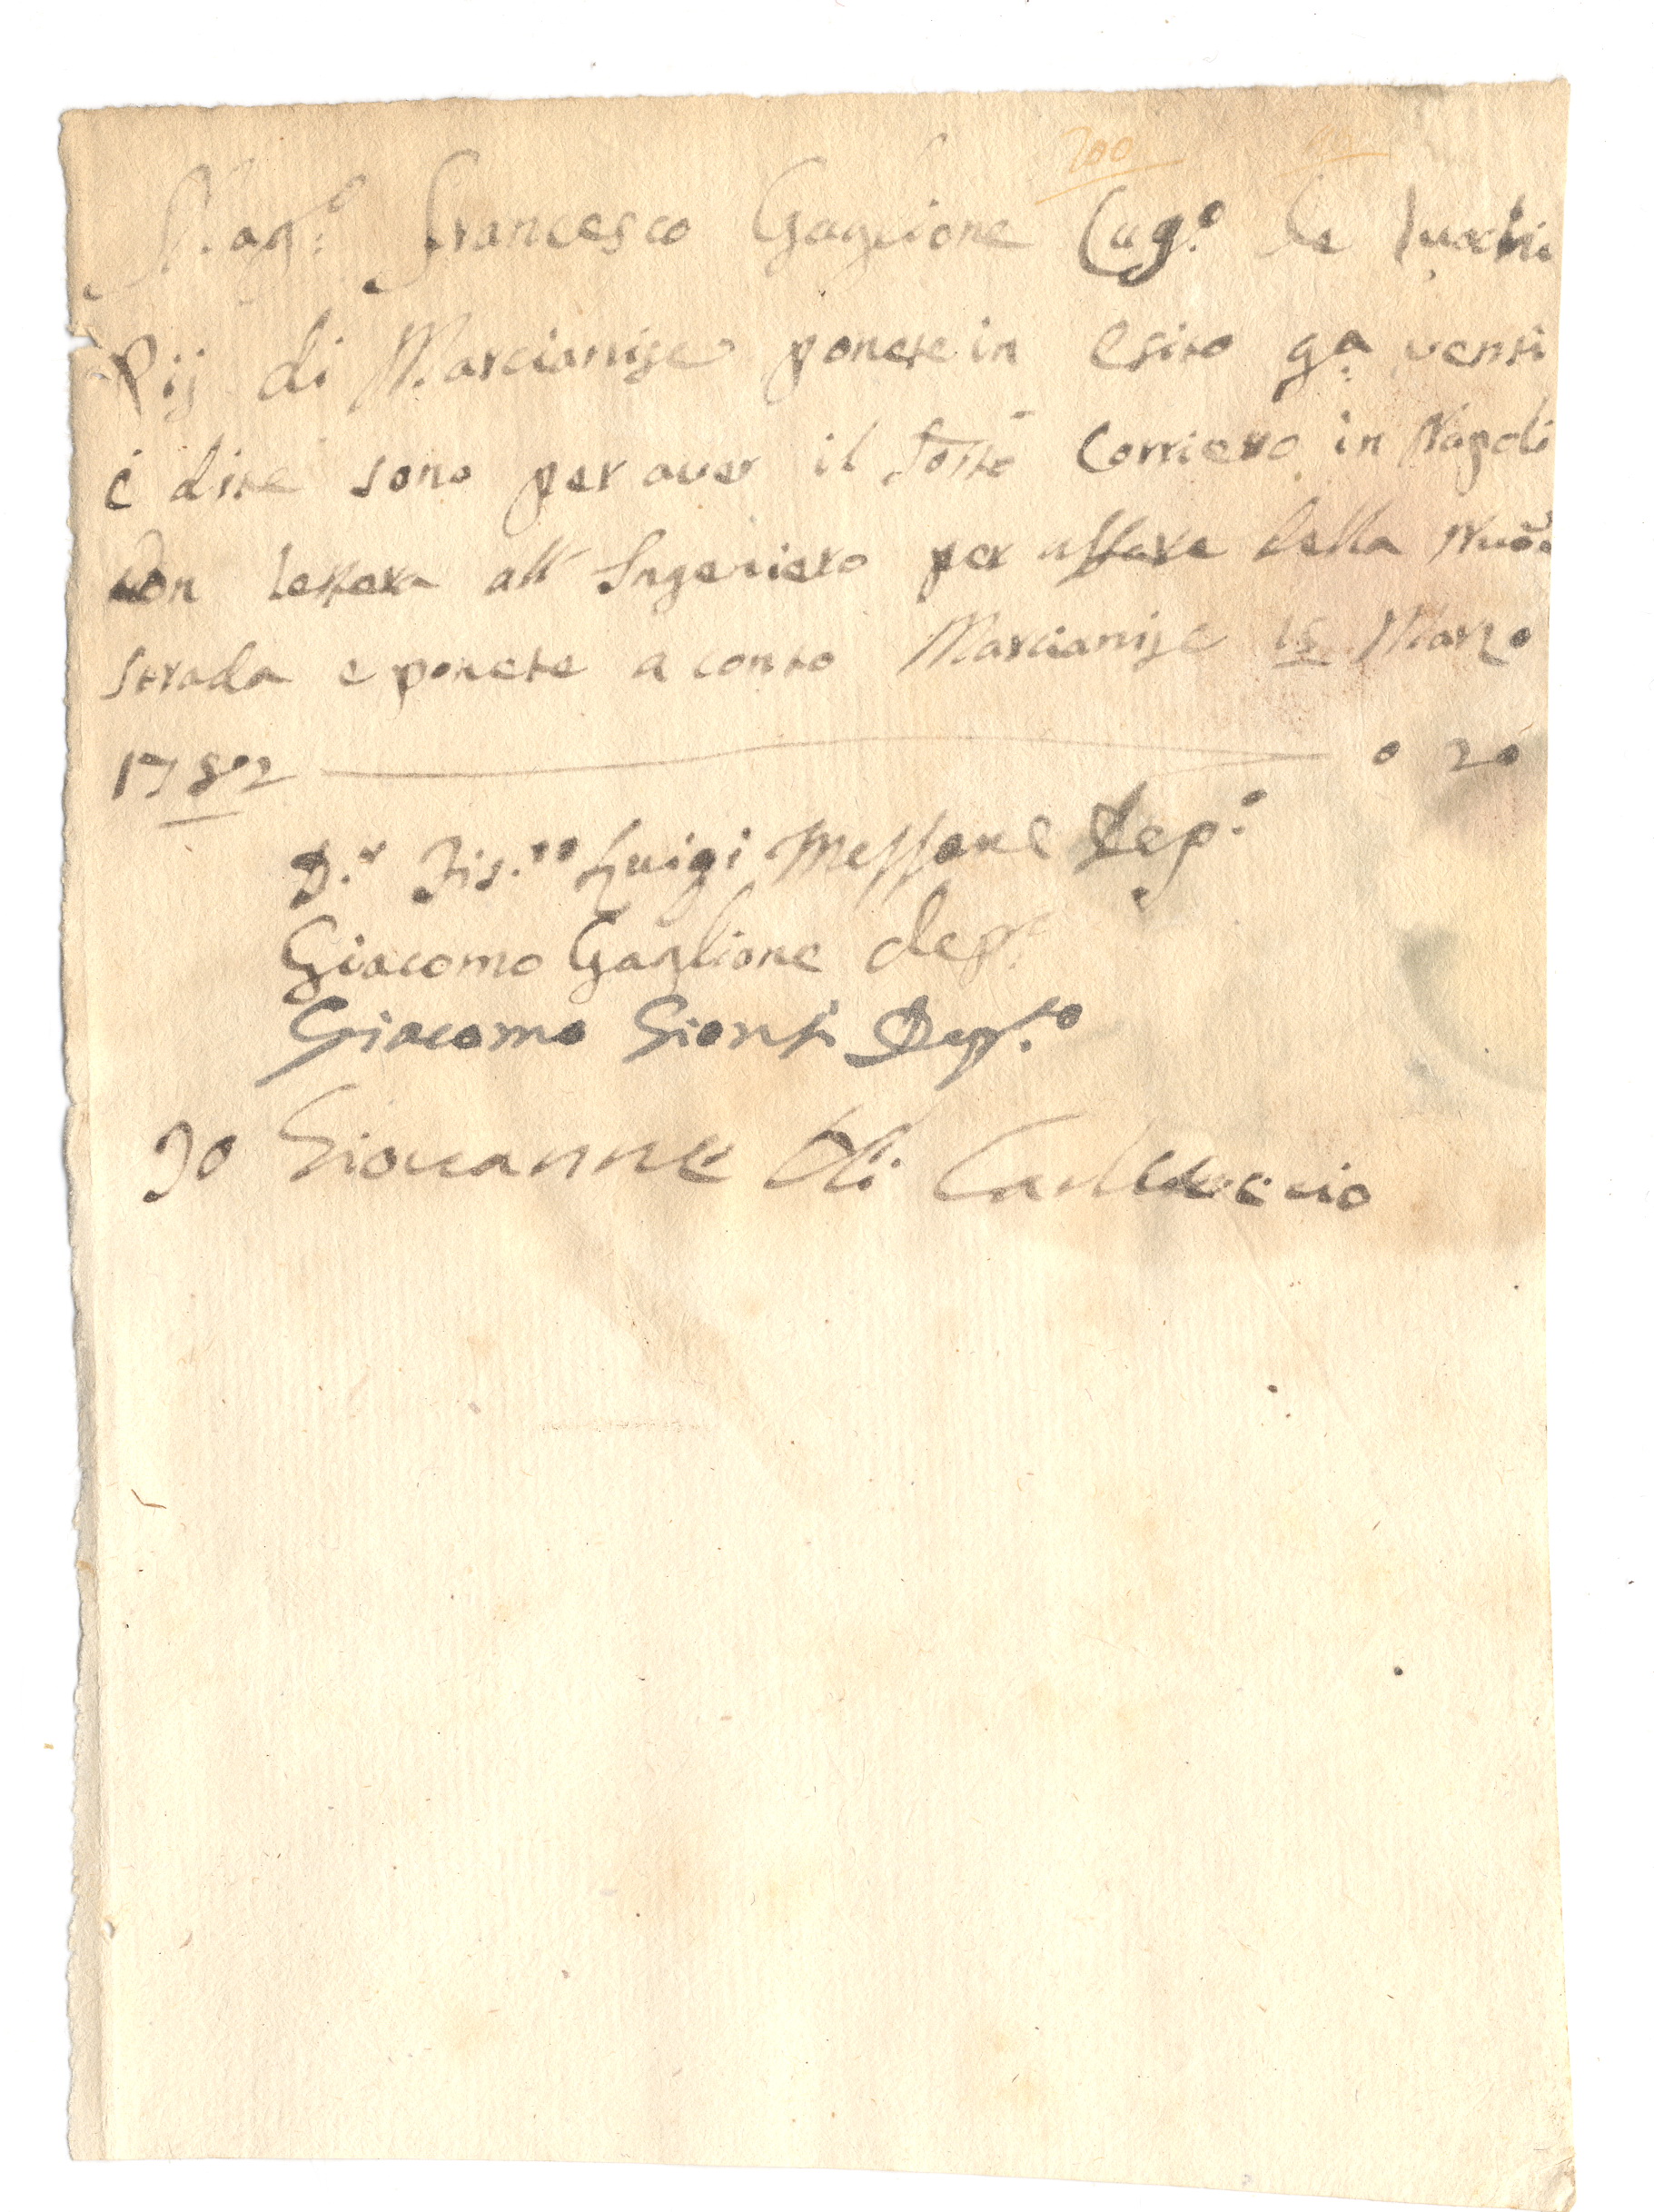 200
Mag.co Francesco Gaglione Cag.o de luochi
Pij di Marcianise ponete in esito g.a venti
é dite sono per aver il sottō Corriero in Napoli
con lettera all' Ingeniero per affare della Nuōa
strada e ponete a conto Marcianise 15 Marzo
1782 0 20
D.r Fis.co Luigi Messore Dep.o
Giacomo Gaglione dep.
Giacomo Gionti Dep.to
Io Giovanne di